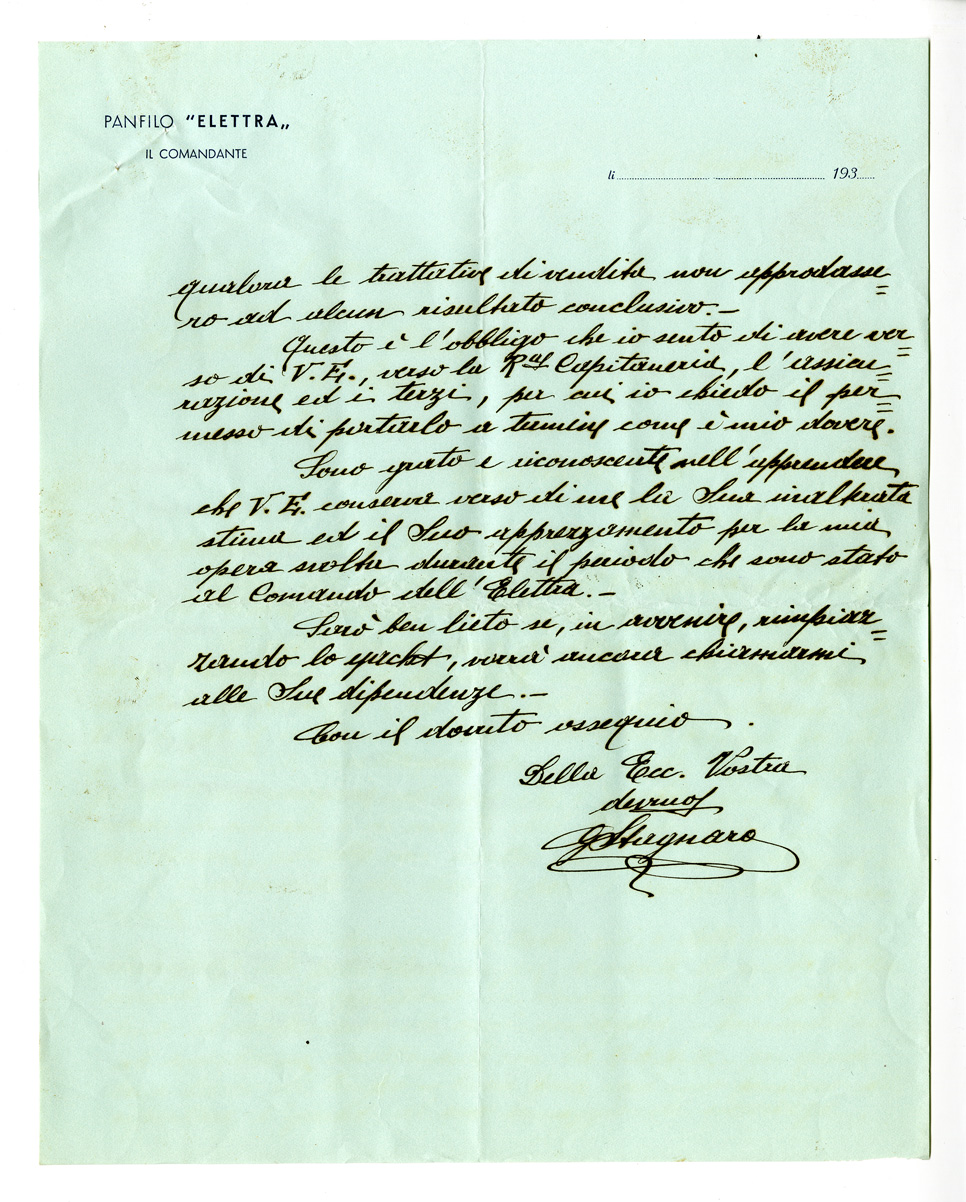 PANFILO "ELETTRA„
IL COMANDANTE
li 193
qualora le trattative di vendita non approdasse=
ro ad alcun risultato conclusivo.—
Questo è l'obbligo che io sento di avere ver=
so di V. E., verso la R.al Capitaneria, l'assicu=
razione ed i terzi, per cui io chiedo il per=
messo di portarlo a termine come è mio dovere.
Sono grato e riconoscente nell'apprendere
che V. E. conserva verso di me la Sua inalterata
stima ed il Suo apprezzamento per la mia
opera svolta durante il periodo che sono stato
al Comando dell'Elettra.—
Sarò ben lieto se, in avvenire, rimpiaz=
zando lo yacht, vorrà ancora chiamarmi
alle Sue dipendenze.—
Con il dovuto ossequio.
Della Ecc. Vostra
devmo
G Stagnaro